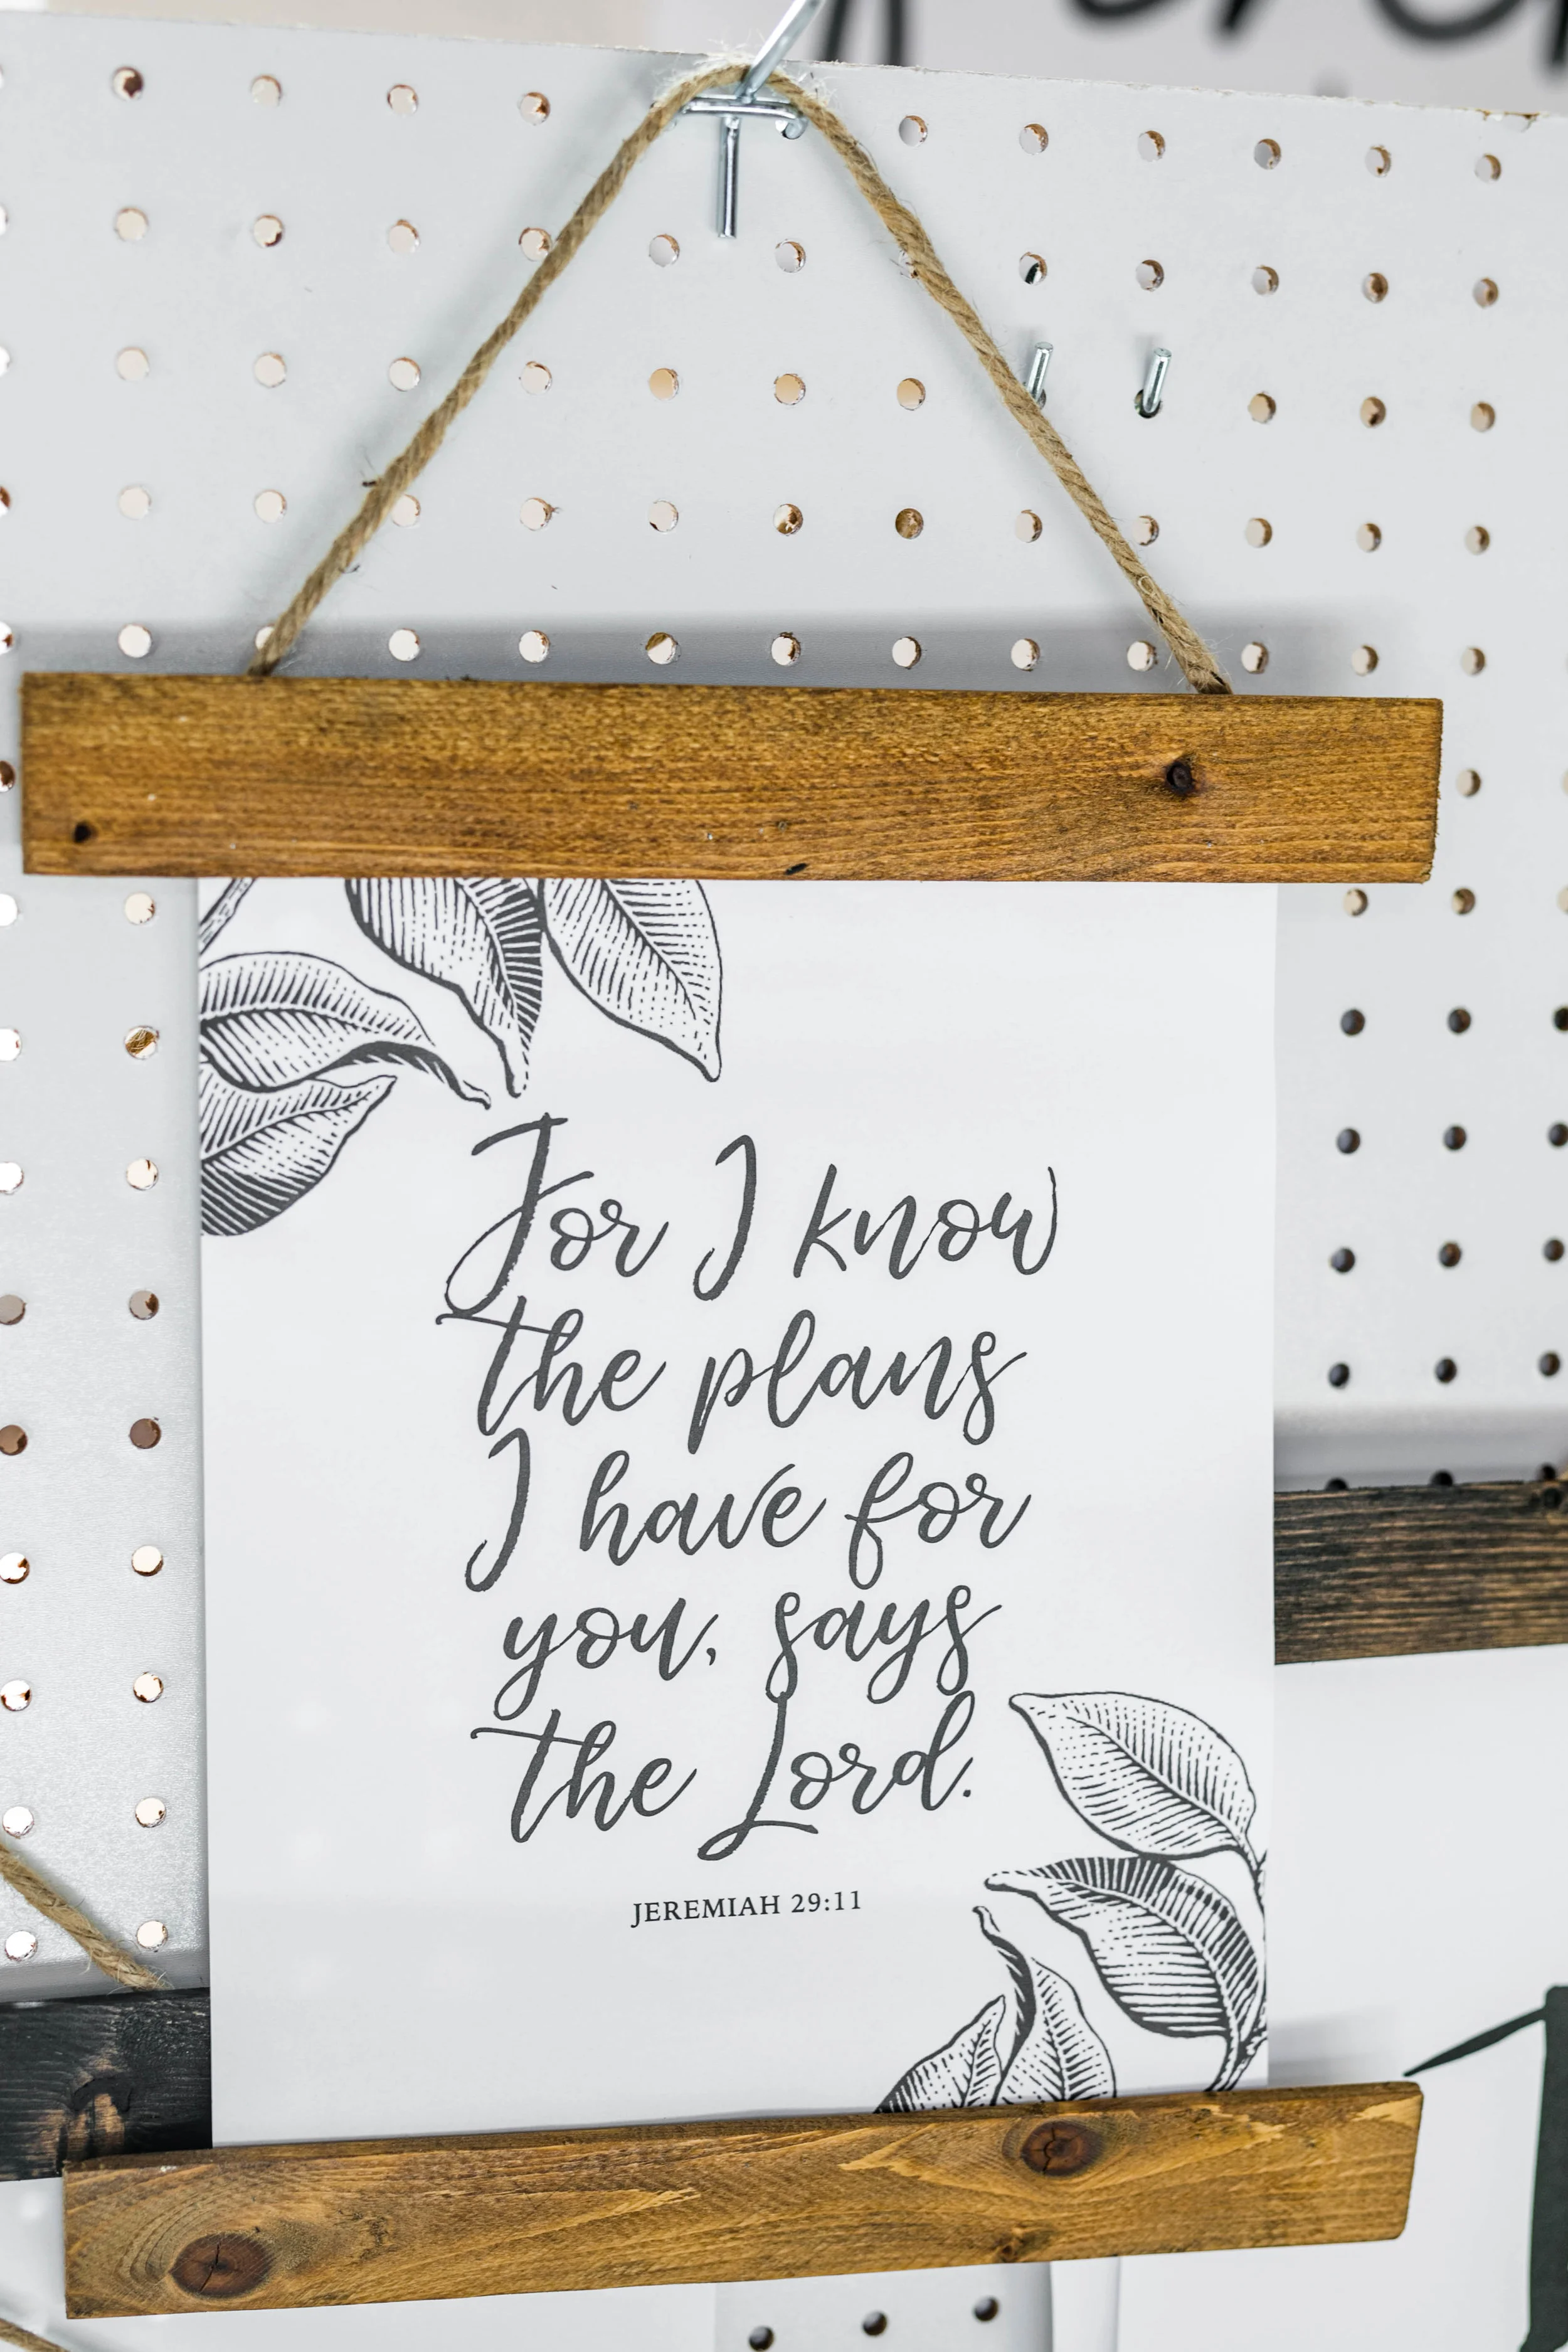 For I know
the plans
I have for
you, says
the Lord.
JEREMIAH 29:11